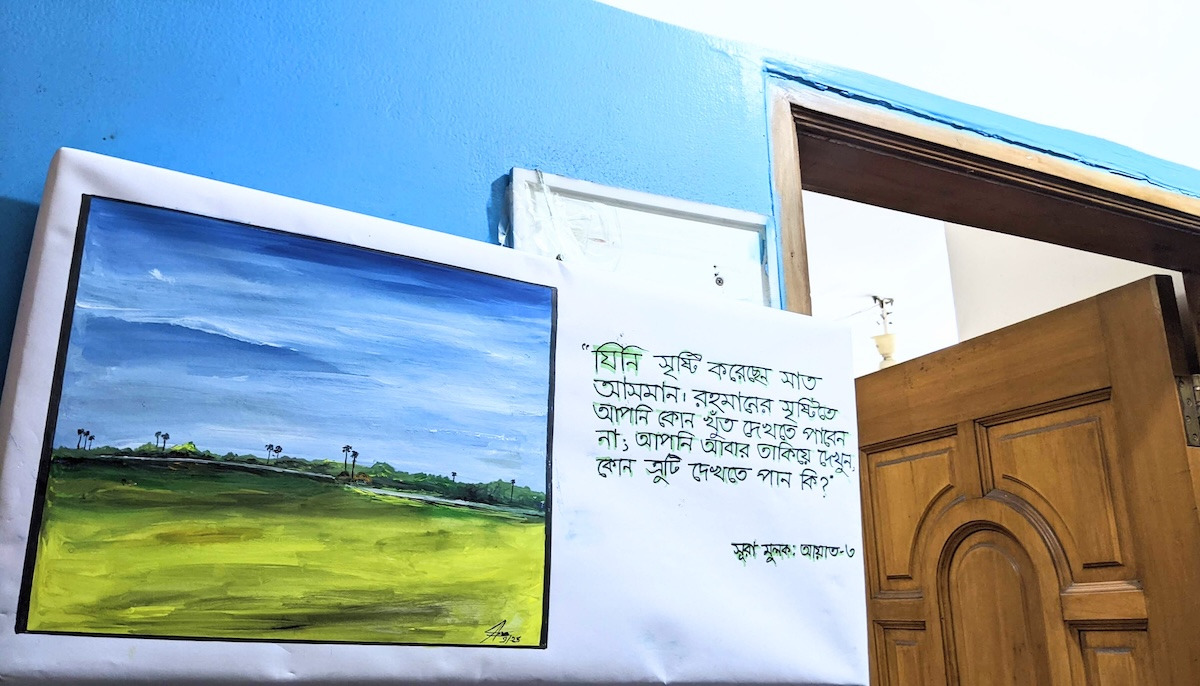 "যিনি সৃষ্টি করেছেন সাত
আসমান। রহমানের সৃষ্টিতে
আপনি কোন খুঁত দেখতে পাবেন
না; আপনি আবার তাকিয়ে দেখুন,
কোন ত্রুটি দেখতে পান কি?"
সুরা মুলক: আয়াত-৩